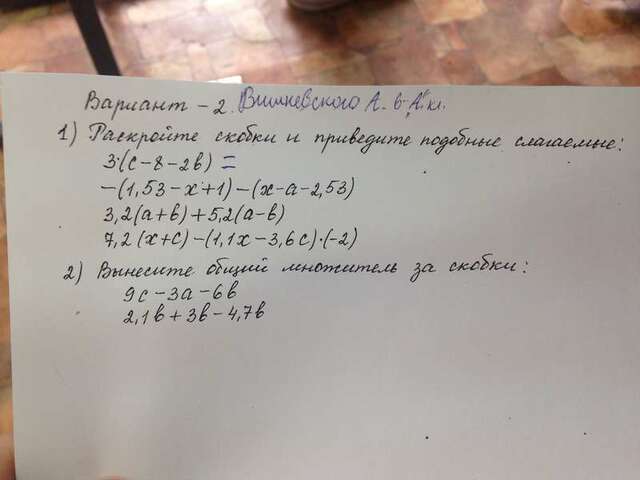 Вариант - 2. Вишневского А. 6 "А" кл.
1) Раскройте скобки и приведите подобные слагаемые:
3·(c-8-2в) =
-(1,53-x+1)-(x-a-2,53)
3,2(a+в)+5,2(a-в)
7,2(x+c)-(1,1x-3,6c)·(-2)
2) Вынесите общий множитель за скобки:
9c-3a-6в
2,1в+3в-4,7в